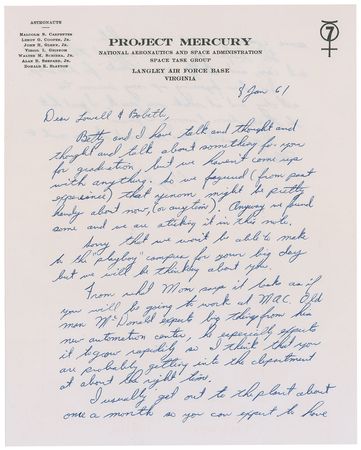 ASTRONAUTS
MALCOLM S. CARPENTER
LEROY G. COOPER, JR.
JOHN H. GLENN, JR.
VIRGIL I. GRISSOM
WALTER M. SCHIRRA, JR.
ALAN B. SHEPARD, JR.
DONALD K. SLAYTON
PROJECT MERCURY
NATIONAL AERONAUTICS AND SPACE ADMINISTRATION
SPACE TASK GROUP
LANGLEY AIR FORCE BASE
VIRGINIA
7
8 Jan 61
Dear Lowell & Bobette,
Betty and I have talk and thought and
thought and talk about something for you
for graduation, but we haven't come up
with anything, so we figured (from past
experience) that might be pretty
handy about now, (or anytime). Anyway we found
some and we are sticking it in this note.
Sorry that we won't be able to make
to the "playboy" campus for your big day
but we will be thinking about you.
From what Mom says it looks as if
you will be going to work at MAC. Old
man McDonald expect big things from his
new automation center, he especially expects
it to grow rapidly so I think that you
are probably getting into the department
at about the right time.
I usually get out to the plant about
once a month so you can expect to have